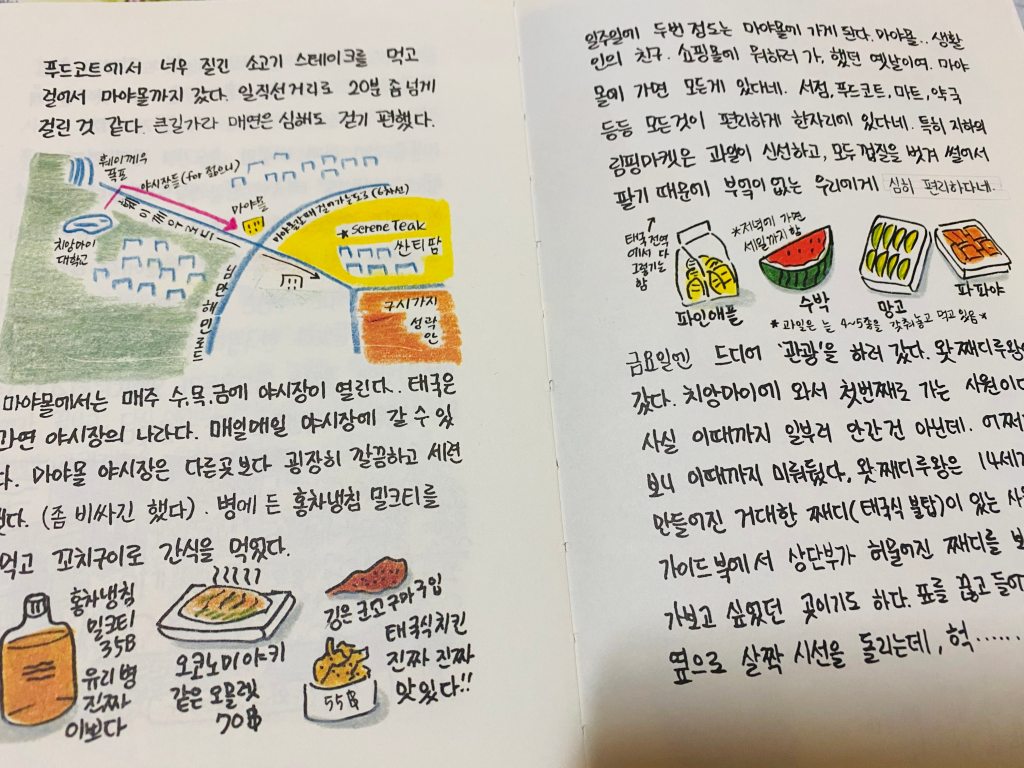 푸드코트에서 너무 질긴 소고기 스테이크를 먹고
걸어서 마야몰까지 갔다. 일직선거리로 20분 좀 넘게
걸린 것 같다. 큰길가라 매연은 심해도 걷기 편했다.
훼이께우
폭포
야시장들 (for 젊으니)
마야몰
마야몰갈때 걸어가는도로 (6차선)
훼이깨우로드
치앙마이
대학교
★ Serene Teak
싼티팜
님만해민로드
구시가지
성곽
안
마야몰에서는 매주 수,목,금에 야시장이 열린다. 태국은
간연 야시장의 나라다. 매일매일 야시장에 갈 수 있
다. 마야몰 야시장은 다른곳보다 굉장히 깔끔하고 세련
됐다. (좀 비싸긴 했다). 병에 든 홍차냉침 밀크티를
먹고 꼬치구이로 간식을 먹었다.
홍차냉침
밀크티
35B
유리병
진짜
이뽀다
오코노미야키
같은 오믈렛
70฿
김은 군고구마구입
태국식치킨
진짜 진짜
맛있다!!
55฿
일주일에 두번 정도는 마야몰에 가게 된다. 마야몰.. 생활
인의 친구. 쇼핑몰에 뭐하러 가, 했던 옛날이여. 마야
몰에 가면 모든게 있다네. 서점, 푸드코트, 마트, 약국
등등 모든것이 편리하게 한자리에 있다네. 특히 지하의
림핑마켓은 과일이 신선하고, 모두 껍질을 벗겨 썰어서
팔기 때문에 부엌이 없는 우리에게 심히 편리하다네.
태국 전역
에서 다
그렇기는
함
*저녁에 가면
세일까지 함
파인애플
수박
망고
파파야
* 과일은 늘 4~5종을 갖춰놓고 먹고 있음 *
금요일엔 드디어 '관광'을 하러 갔다. 왓 째디루왕에
갔다. 치앙마이에 와서 첫번째로 가는 사원이다
사실 이때까지 일부러 안간건 아닌데. 어쩌
보니 이때까지 미뤄뒀다. 왓 째디루왕은 14세기
만들어진 거대한 째디(태국식 불탑)이 있는 사
가이드북에서 상단부가 허물어진 째디를 보
가보고 싶었던 곳이기도 하다. 표를 끊고 들어
옆으로 살짝 시선을 돌리는데, 헉......